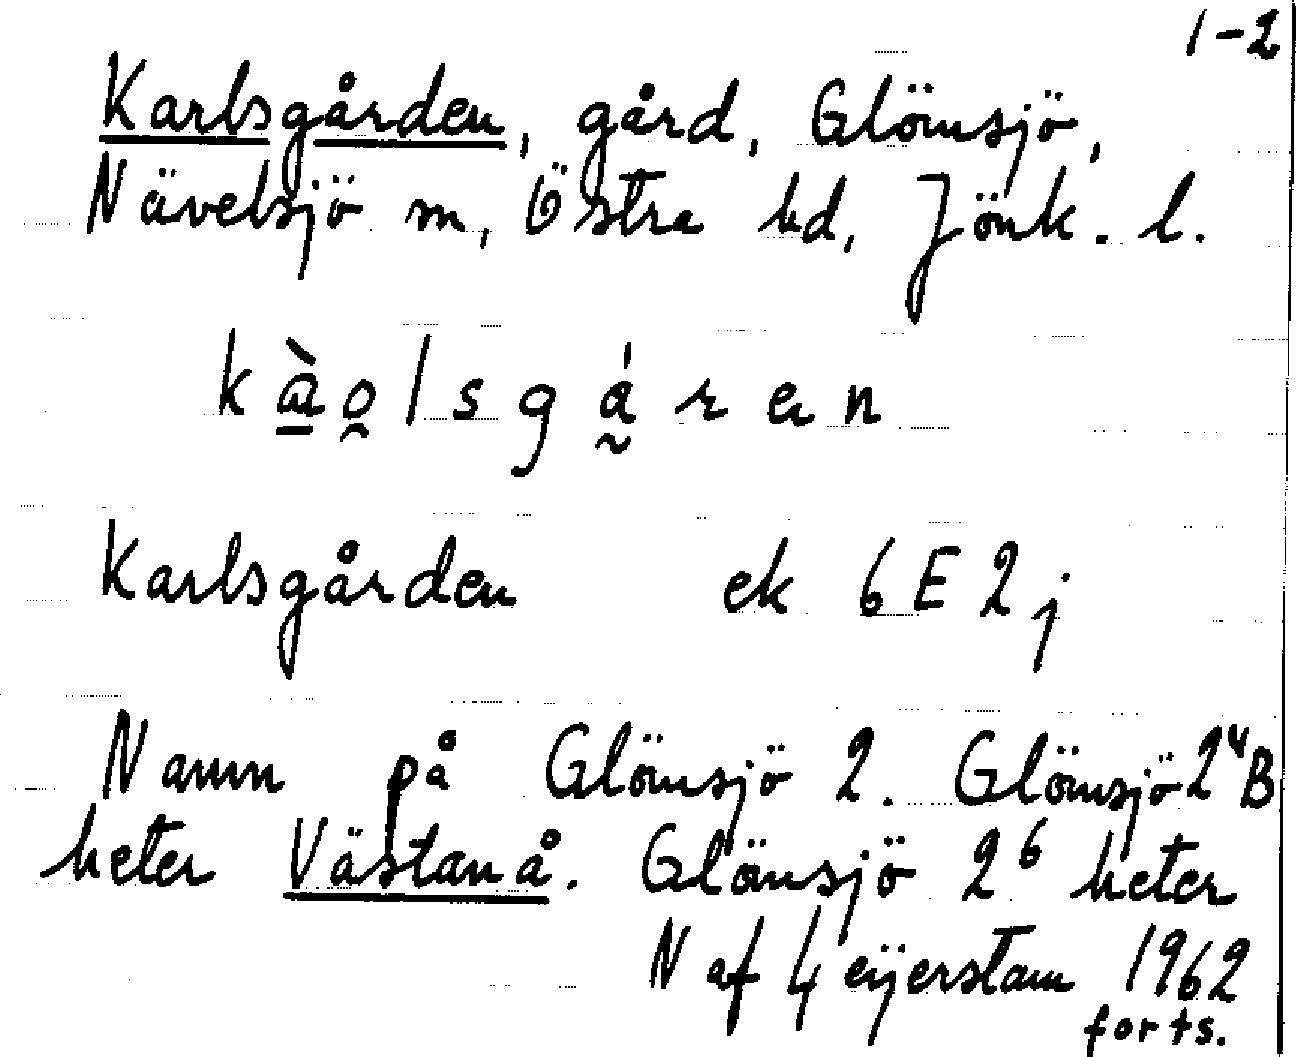 1-2
Karlsgården, gård, Glömsjö,
Nävelsjö sn, Östra hd, Jönk. l.
kàolsgáren
Karlsgården ek 6E2j
Namn på Glömsjö 2. Glömsjö 2⁴B
heter Västanå. Glömsjö 2⁶ heter
N af Geijerstam 1962
forts.